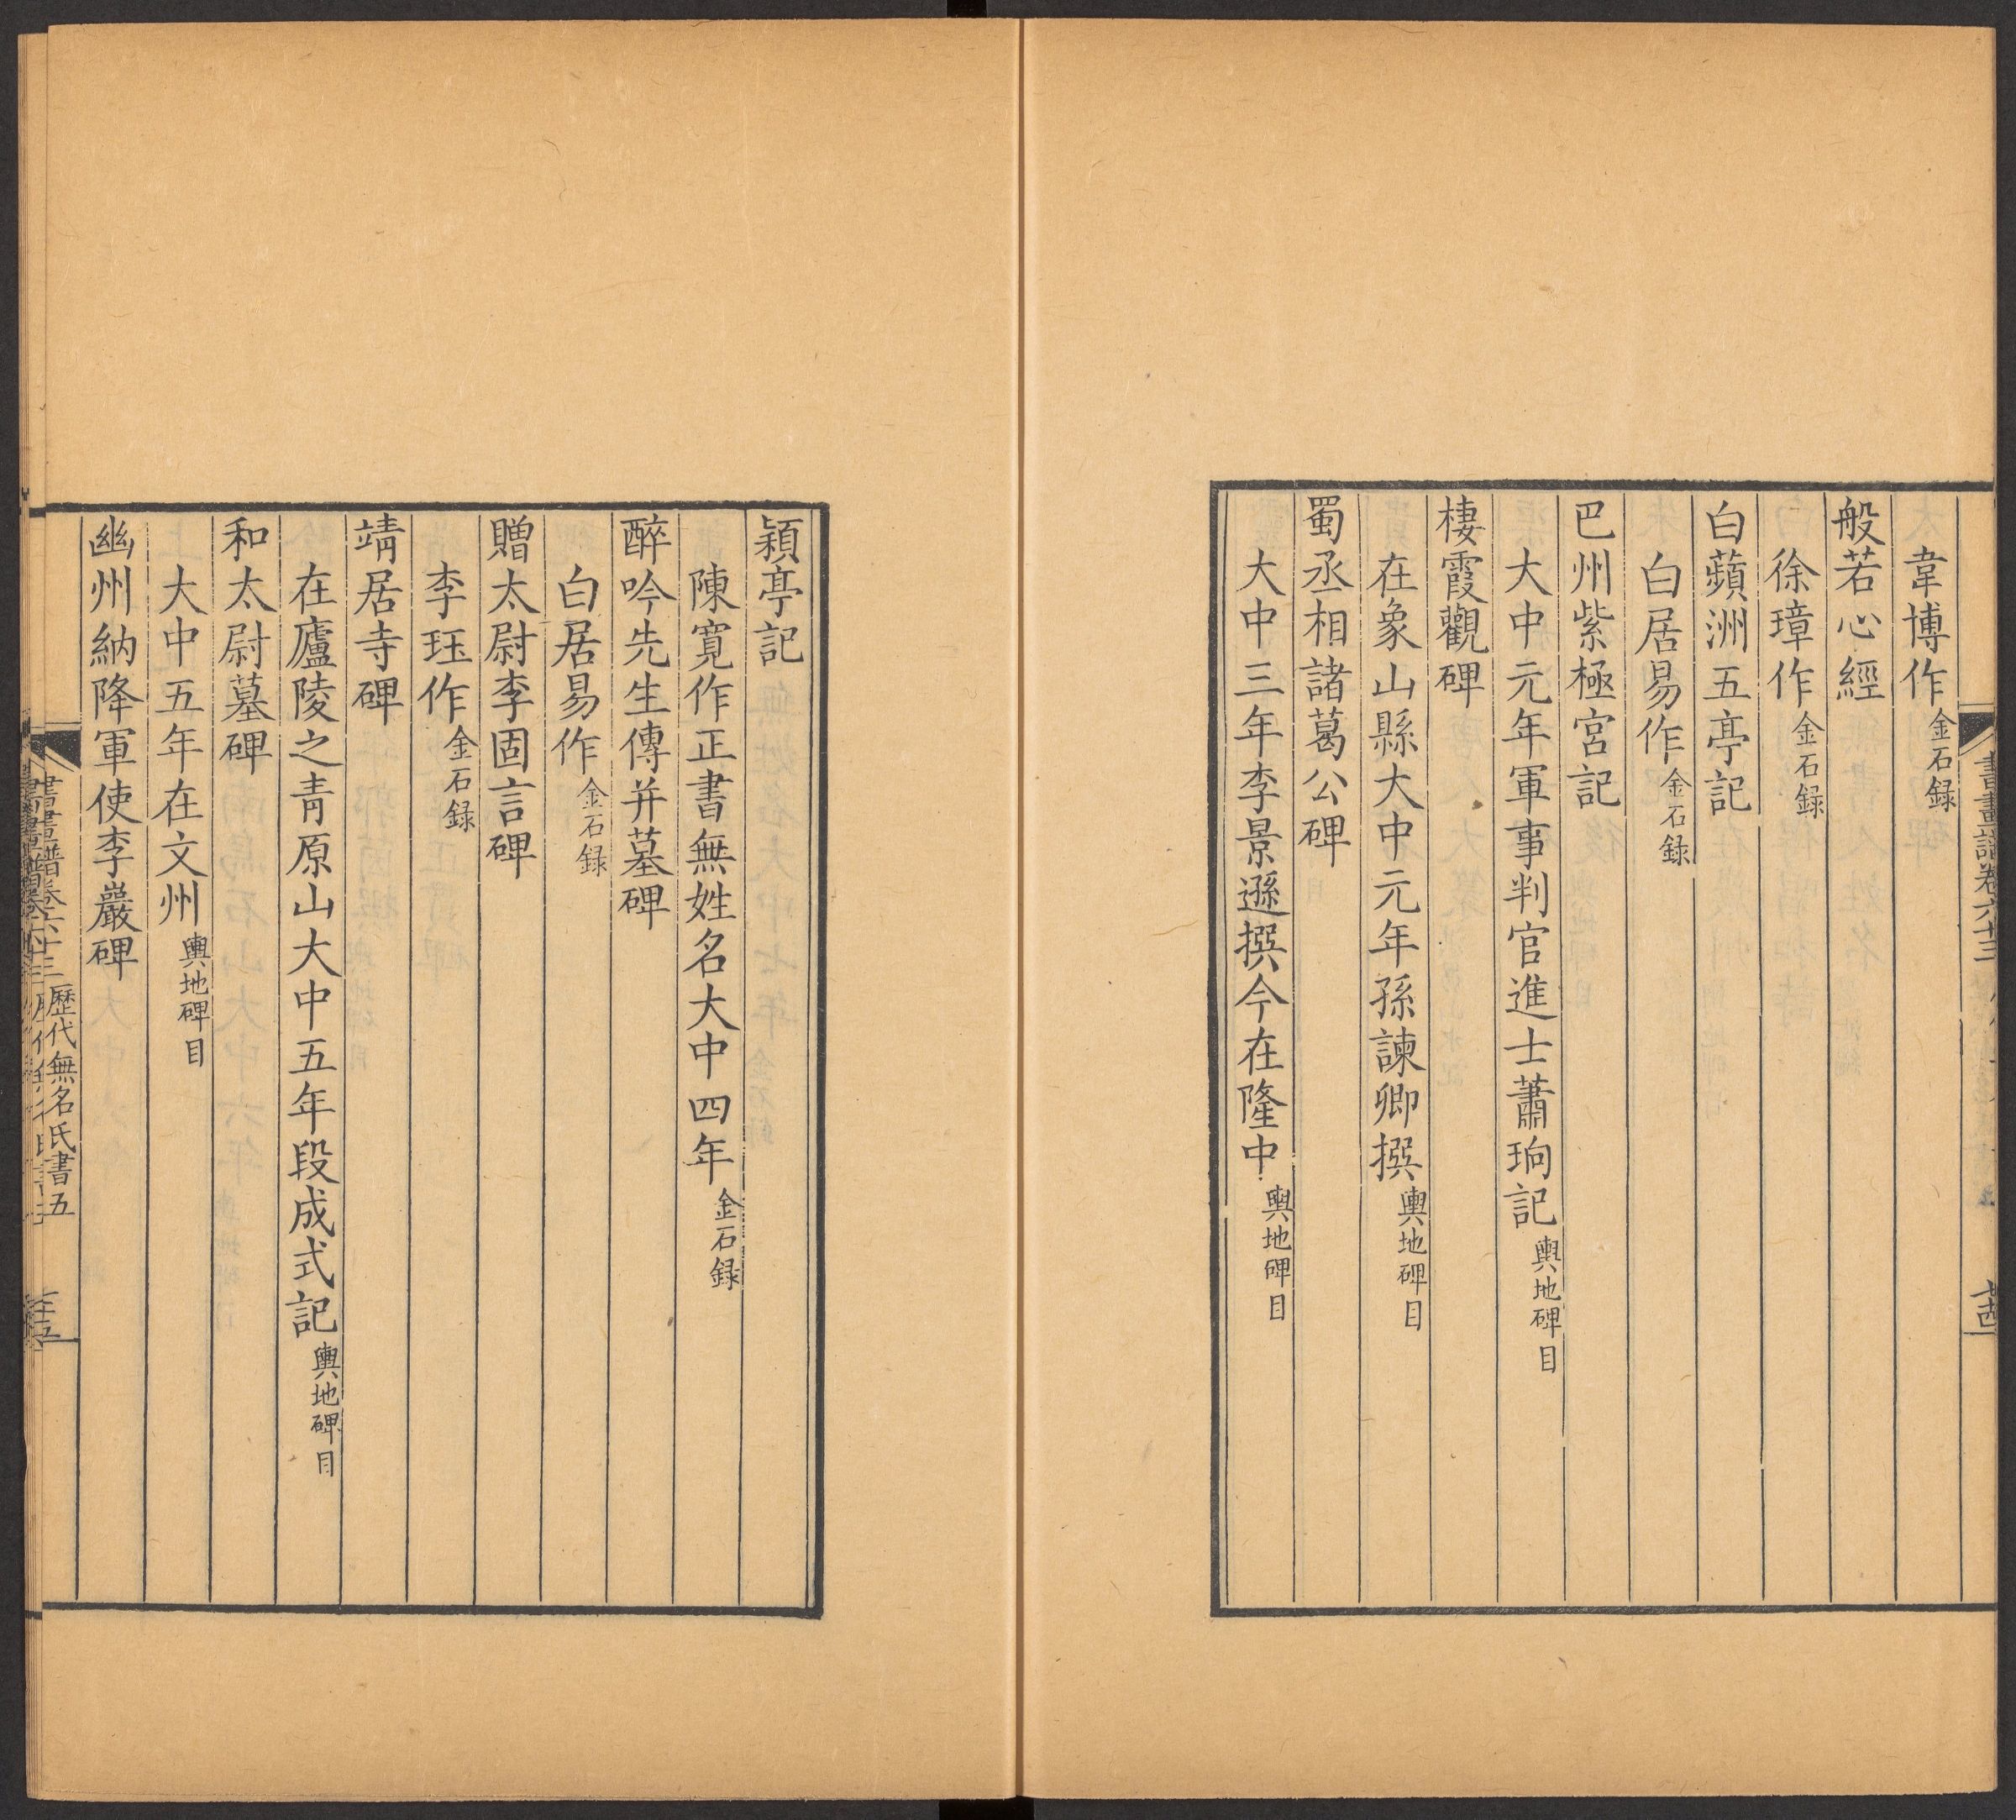 韋博作金石録
般若心經
徐璋作金石録
白蘋洲五亭記
白居易作金石録
巴州紫極宮記
大中元年軍事判官進士蕭珦記輿地碑目
棲霞觀碑
在象山縣大中元年孫諫卿撰輿地碑目
蜀丞相諸葛公碑
大中三年李景遜撰今在隆中輿地碑目
潁亭記
陳寬作正書無姓名大中四年金石録
醉吟先生傳并墓碑
白居易作金石録
贈太尉李固言碑
李珏作金石録
靖居寺碑
在廬陵之青原山大中五年段成式記輿地碑目
和太尉墓碑
大中五年在文州輿地碑目
幽州納降軍使李巖碑
書畫譜卷六十三 歷代無名氏書五